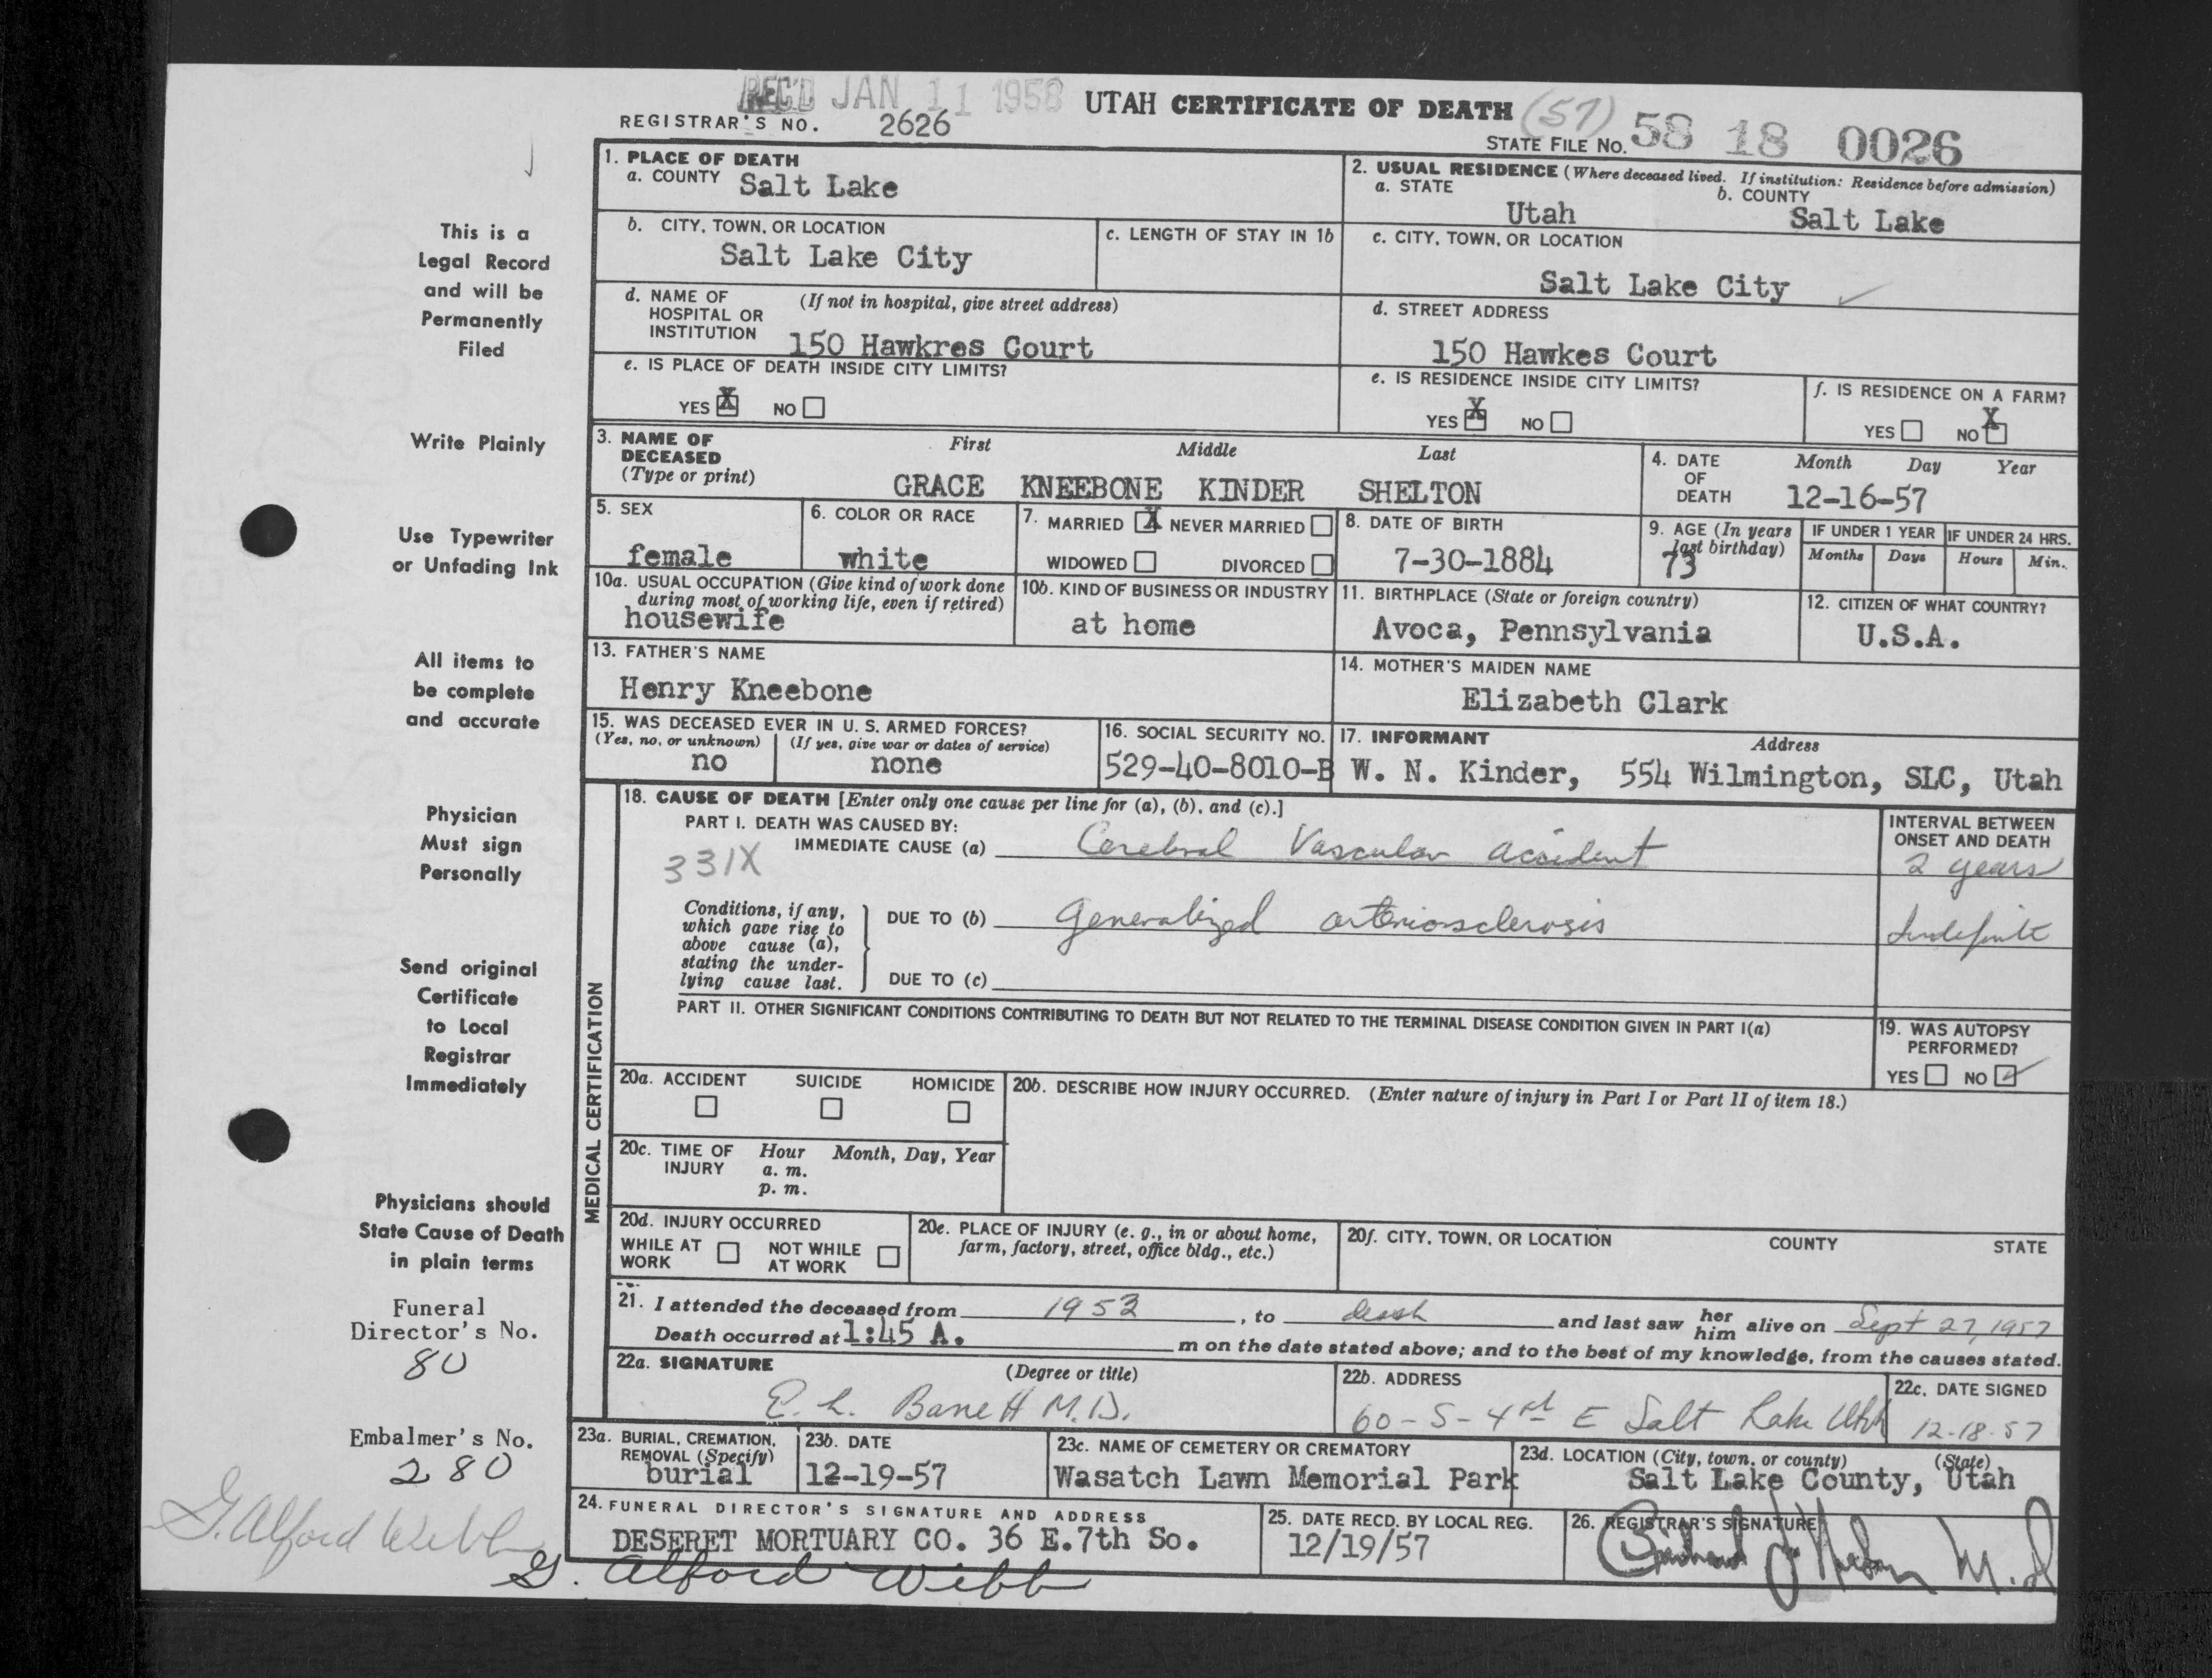 REC'D JAN 11 1958 UTAH CERTIFICATE OF DEATH (57)
REGISTRAR'S NO. 2626
STATE FILE NO. 58 18 0026
1. PLACE OF DEATH
a. COUNTY Salt Lake
2. USUAL RESIDENCE (Where deceased lived. If institution: Residence before admission)
a. STATE Utah
b. COUNTY Salt Lake
b. CITY, TOWN, OR LOCATION
Salt Lake City
c. LENGTH OF STAY IN 1b
c. CITY, TOWN, OR LOCATION
Salt Lake City
d. NAME OF HOSPITAL OR INSTITUTION (If not in hospital, give street address)
150 Hawkres Court
d. STREET ADDRESS
150 Hawkes Court
e. IS PLACE OF DEATH INSIDE CITY LIMITS?
YES X NO
e. IS RESIDENCE INSIDE CITY LIMITS?
YES X NO
f. IS RESIDENCE ON A FARM?
YES NO X
3. NAME OF DECEASED (Type or print)
First Middle Last
GRACE KNEEBONE KINDER SHELTON
4. DATE OF DEATH
Month Day Year
12-16-57
5. SEX
female
6. COLOR OR RACE
white
7. MARRIED X NEVER MARRIED
WIDOWED DIVORCED
8. DATE OF BIRTH
7-30-1884
9. AGE (In years last birthday)
73
IF UNDER 1 YEAR
Months Days
IF UNDER 24 HRS.
Hours Min.
10a. USUAL OCCUPATION (Give kind of work done during most of working life, even if retired)
housewife
10b. KIND OF BUSINESS OR INDUSTRY
at home
11. BIRTHPLACE (State or foreign country)
Avoca, Pennsylvania
12. CITIZEN OF WHAT COUNTRY?
U.S.A.
13. FATHER'S NAME
Henry Kneebone
14. MOTHER'S MAIDEN NAME
Elizabeth Clark
15. WAS DECEASED EVER IN U. S. ARMED FORCES?
(Yes, no, or unknown) (If yes, give war or dates of service)
no none
16. SOCIAL SECURITY NO.
529-40-8010-B
17. INFORMANT Address
W. N. Kinder, 554 Wilmington, SLC, Utah
MEDICAL CERTIFICATION
18. CAUSE OF DEATH [Enter only one cause per line for (a), (b), and (c).]
PART I. DEATH WAS CAUSED BY:
IMMEDIATE CAUSE (a) Cerebral Vascular accident
331X
INTERVAL BETWEEN ONSET AND DEATH
2 years
Conditions, if any, which gave rise to above cause (a), stating the underlying cause last.
DUE TO (b) generalized arteriosclerosis
Indefinite
DUE TO (c)
PART II. OTHER SIGNIFICANT CONDITIONS CONTRIBUTING TO DEATH BUT NOT RELATED TO THE TERMINAL DISEASE CONDITION GIVEN IN PART I(a)
19. WAS AUTOPSY PERFORMED?
YES NO ✓
20a. ACCIDENT SUICIDE HOMICIDE
20b. DESCRIBE HOW INJURY OCCURRED. (Enter nature of injury in Part I or Part II of item 18.)
20c. TIME OF INJURY Hour Month, Day, Year
a. m.
p. m.
20d. INJURY OCCURRED
WHILE AT WORK NOT WHILE AT WORK
20e. PLACE OF INJURY (e. g., in or about home, farm, factory, street, office bldg., etc.)
20f. CITY, TOWN, OR LOCATION COUNTY STATE
21. I attended the deceased from 1953, to death and last saw her him alive on Sept 27, 1957
Death occurred at 1:45 A. m on the date stated above; and to the best of my knowledge, from the causes stated.
22a. SIGNATURE (Degree or title)
E. L. Barrett M.D.
22b. ADDRESS
60-S-4th E Salt Lake Utah
22c. DATE SIGNED
12-18-57
23a. BURIAL, CREMATION, REMOVAL (Specify)
burial
23b. DATE
12-19-57
23c. NAME OF CEMETERY OR CREMATORY
Wasatch Lawn Memorial Park
23d. LOCATION (City, town, or county) (State)
Salt Lake County, Utah
24. FUNERAL DIRECTOR'S SIGNATURE AND ADDRESS
DESERET MORTUARY CO. 36 E.7th So.
G. Alford Webb
25. DATE RECD. BY LOCAL REG.
12/19/57
26. REGISTRAR'S SIGNATURE
M.D
This is a
Legal Record
and will be
Permanently
Filed
Write Plainly
Use Typewriter
or Unfading Ink
All items to
be complete
and accurate
Physician
Must sign
Personally
Send original
Certificate
to Local
Registrar
Immediately
Physicians should
State Cause of Death
in plain terms
Funeral
Director's No.
80
Embalmer's No.
280
G. Alford Webb